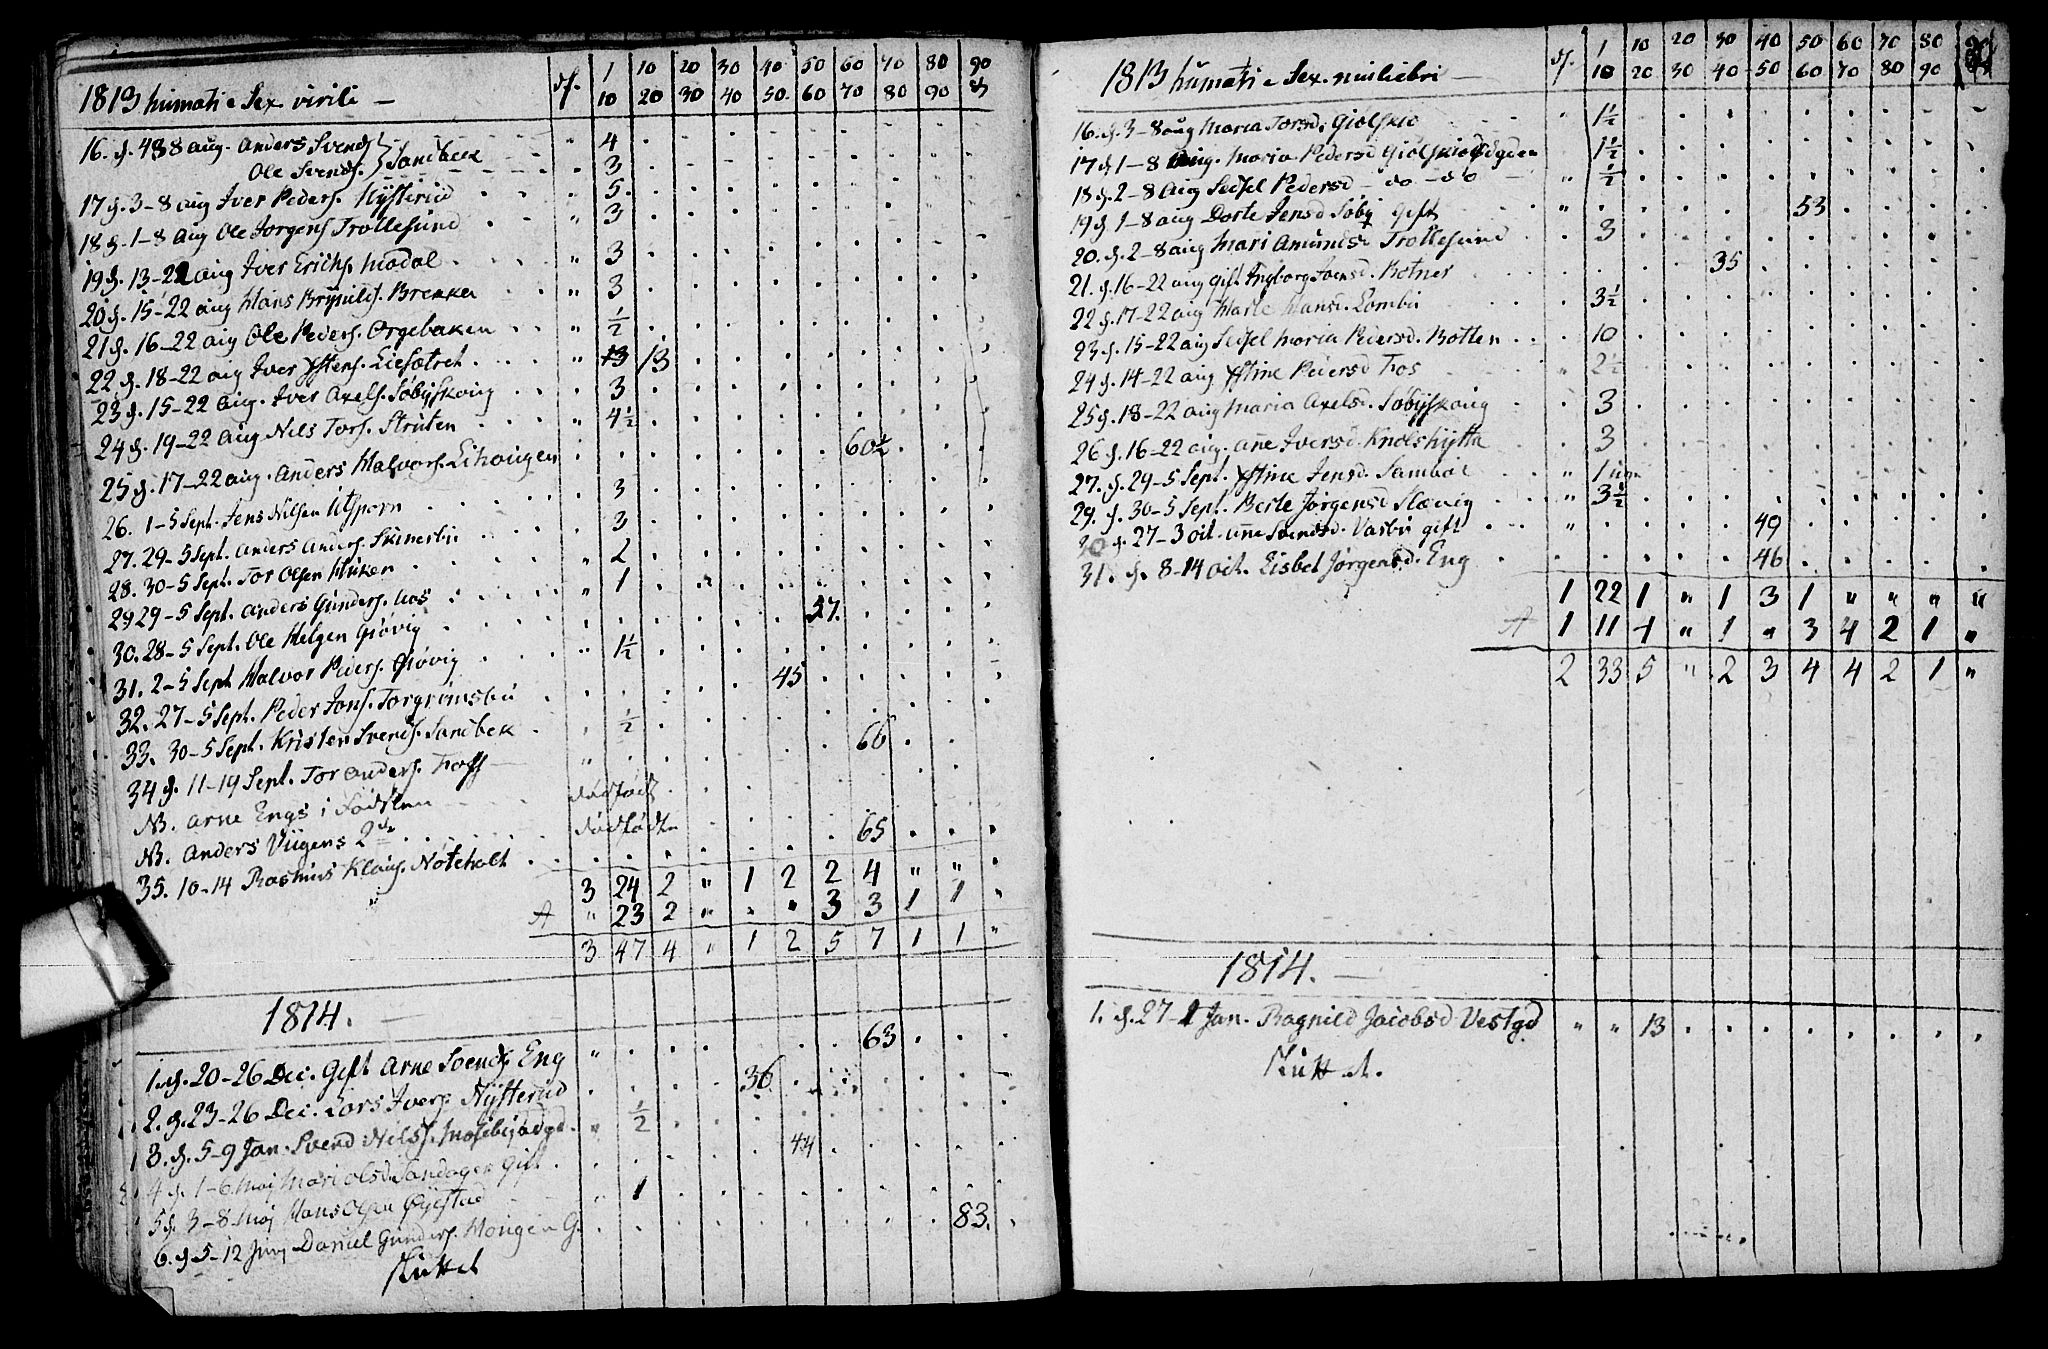 1813 humati e Sex. virili — df. 1/10 10/20 20/30 30/40 40/50 50/60 60/70 70/80 80/90 90
16. d. 8 aug. Anders Svends } Sandbek " 4
Ole Svends. " 3
17 d. 3–8 aug Iver Peders. Nysterud " 5
18 d. 1–8 aug Ole Jorgens Trollesund " 3
19 d. 13–22 aug Iver Erichs. Modal " 3
20 d. 15–22 aug Hans Brynilds. Brekka " 3
21 d. 16–22 aug Ole Peders. Orgebaken " ½
22 d. 18–22 aug Iver Ystens. Liesætret " 13
23 d. 15–22 aug. Iver Axels. Søbyskoug 3
24 d. 19–22 aug Nils Tors. Struten " 4½
25 d. 17–22 aug. Anders Halvors. Lihougen 60½
26. 1–5 Sept. Jens Nilsen 3
27. 29–5 Sept. Anders Anders. Skinerbu 3
28. 30–5 Sept. Tor Olsen 2
29 29–5 Sept. Anders Gunders. Aos " 1
30. 28–5 Sept. Ole Helgen Giøvig 57.
31. 2–5 Sept Halvor Peders. Giøvig " 1½
32. 27–5 Sept. Peder Jons. Torgrimsbu 45
33. 30–5 Sept. Kristen Svends. Sandbek ½
34 d. 11–19 Sept. Tor Anders. Foss 66
NB. Arne Engs 1 dødfødt
NB. Anders Viigens 2de dødfødte
35. 10–14 Rasmus Klaus. Noteholt 65
3 24 2 " 1 2 2 4 " "
A " 23 2 " " " 3 3 1 1 "
3 47 4 " 1 2 5 7 1 1 "
1814.
1. d. 20–26 Dec. Gift Arne Svends. Eng " 63
2. d. 23–26 Dec. Lars Ivers. Nysterud 36
3. d. 5–9 Jan. Svend Nils. " ½
4 d. 1–6 Maj Mari Olsd. Sandager Gift 44
5 d. 3–8 Maj Hans Olsen Øyestad " 1
6. d. 5–12 Junj Daniel Gunders. Hougen G. 83.
sluttet
1813 humati e Sex. muliebri — df. 1/10 10/20 20/30 30/40 40/50 50/60 60/70 70/80 80/90
16. d. 3–8 aug Maria Torsd. Giølskio " 1½
17 d. 1–8 aug. Maria Pedersd 1½
18 d. 2–8 aug Seisel Pedersd – do – do " ½
19 d. 1–8 aug Dorte Jensd Søby Gift " 53
20. d. 2–8 aug Mari Amundsd Trollesund 3
21. d. 16–22 aug Gift Ingborg Svensd. Botner 35
22 d. 17–22 aug Marte Hansd. Lombu 3½
23 d. 15–22 aug Seisel Maria Pedersd. Botten 10
24 d. 14–22 aug Ystine Pedersd Fos " 2½
25 d. 18–22 aug Maria Axelsd. Søbyskoug 3
26 d. 16–22 aug. Ane Iversd. Knolshytta 3
27. d. 29–5 Sept. Ystine Jensd. Sambøl " 1
29. d. 30–5 Sept. Berte Jørgensd Slævig " 3½
30 d. 27–3 oct. Ane Svendsd. Vasbu gift " 49
31. d. 8–14 oct. Lisbet Jørgensd. Eng 46
1 22 1 " 1 3 1 " " " "
A 1 11 4 " 1 " 3 4 2 1 "
2 33 5 " 2 3 4 4 2 1 "
1814.
1. d. 27–2 Jan. Ragnild Jacobsd Vestgd " " 13
sluttet.